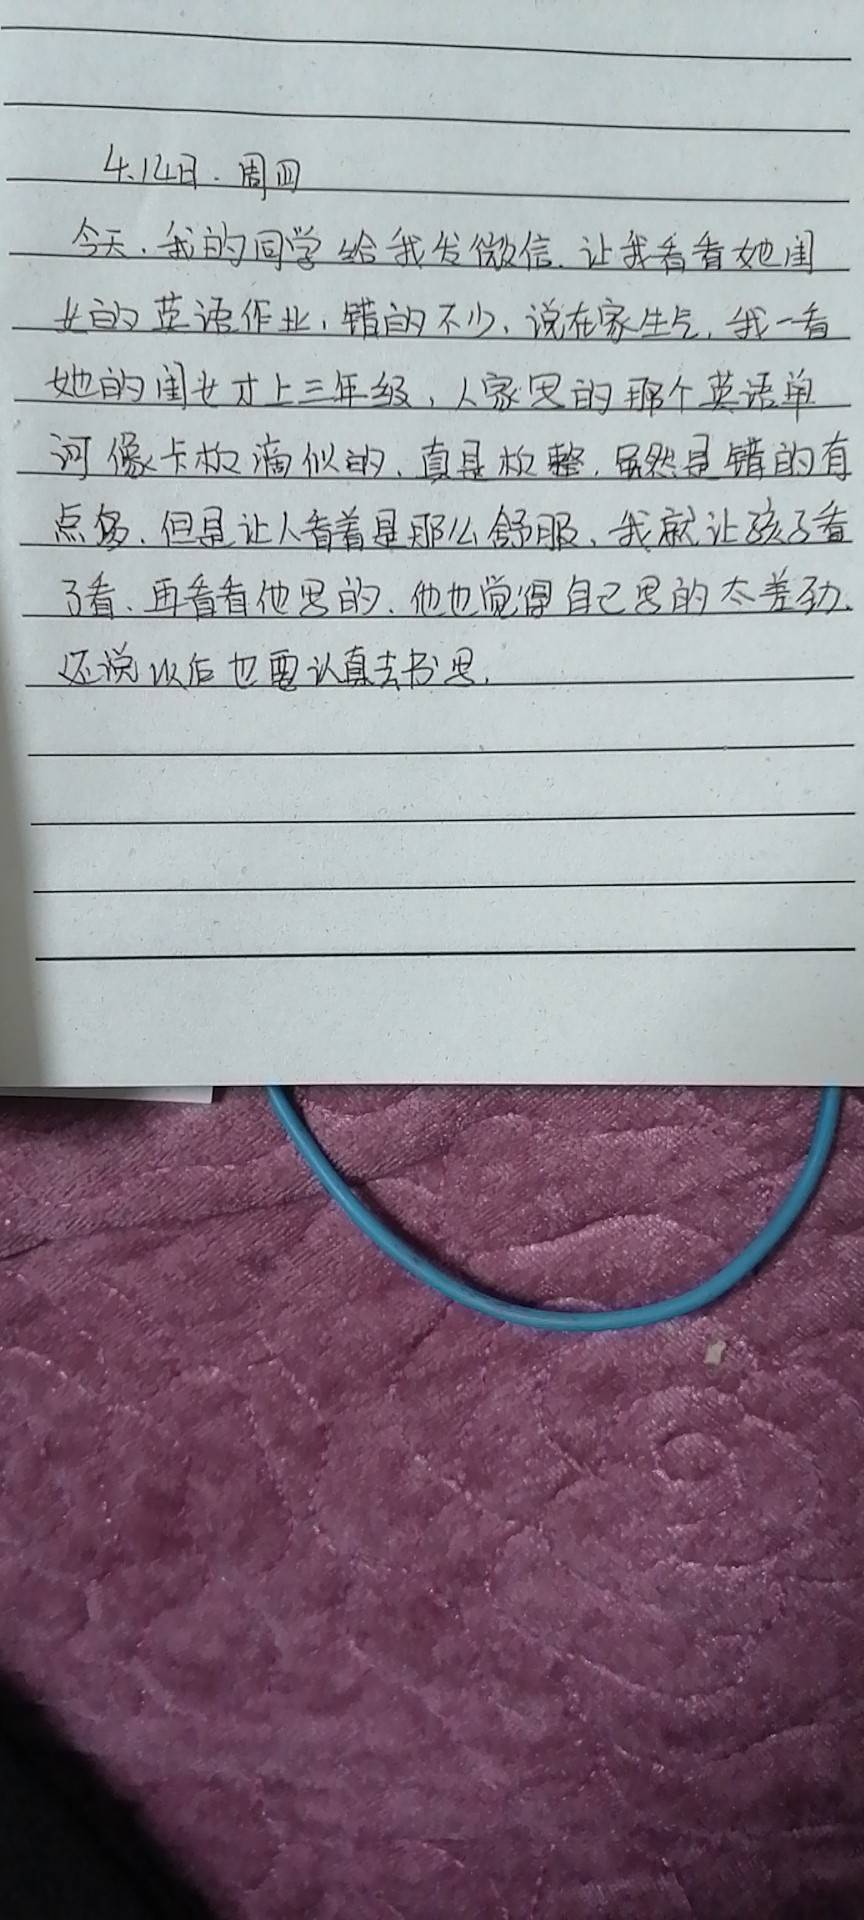 4.14日.周四
今天.我的同学给我发微信.让我看看她闺
女的英语作业,错的不少,说在家生气,我一看
她的闺女才上三年级,人家写的那个英语单
词像卡板滴似的,真是板整,虽然是错的有
点多,但是让人看着是那么舒服,我就让孩子看
了看,再看看他写的,他也觉得自己写的太差劲,
还说以后也要认真去书写.